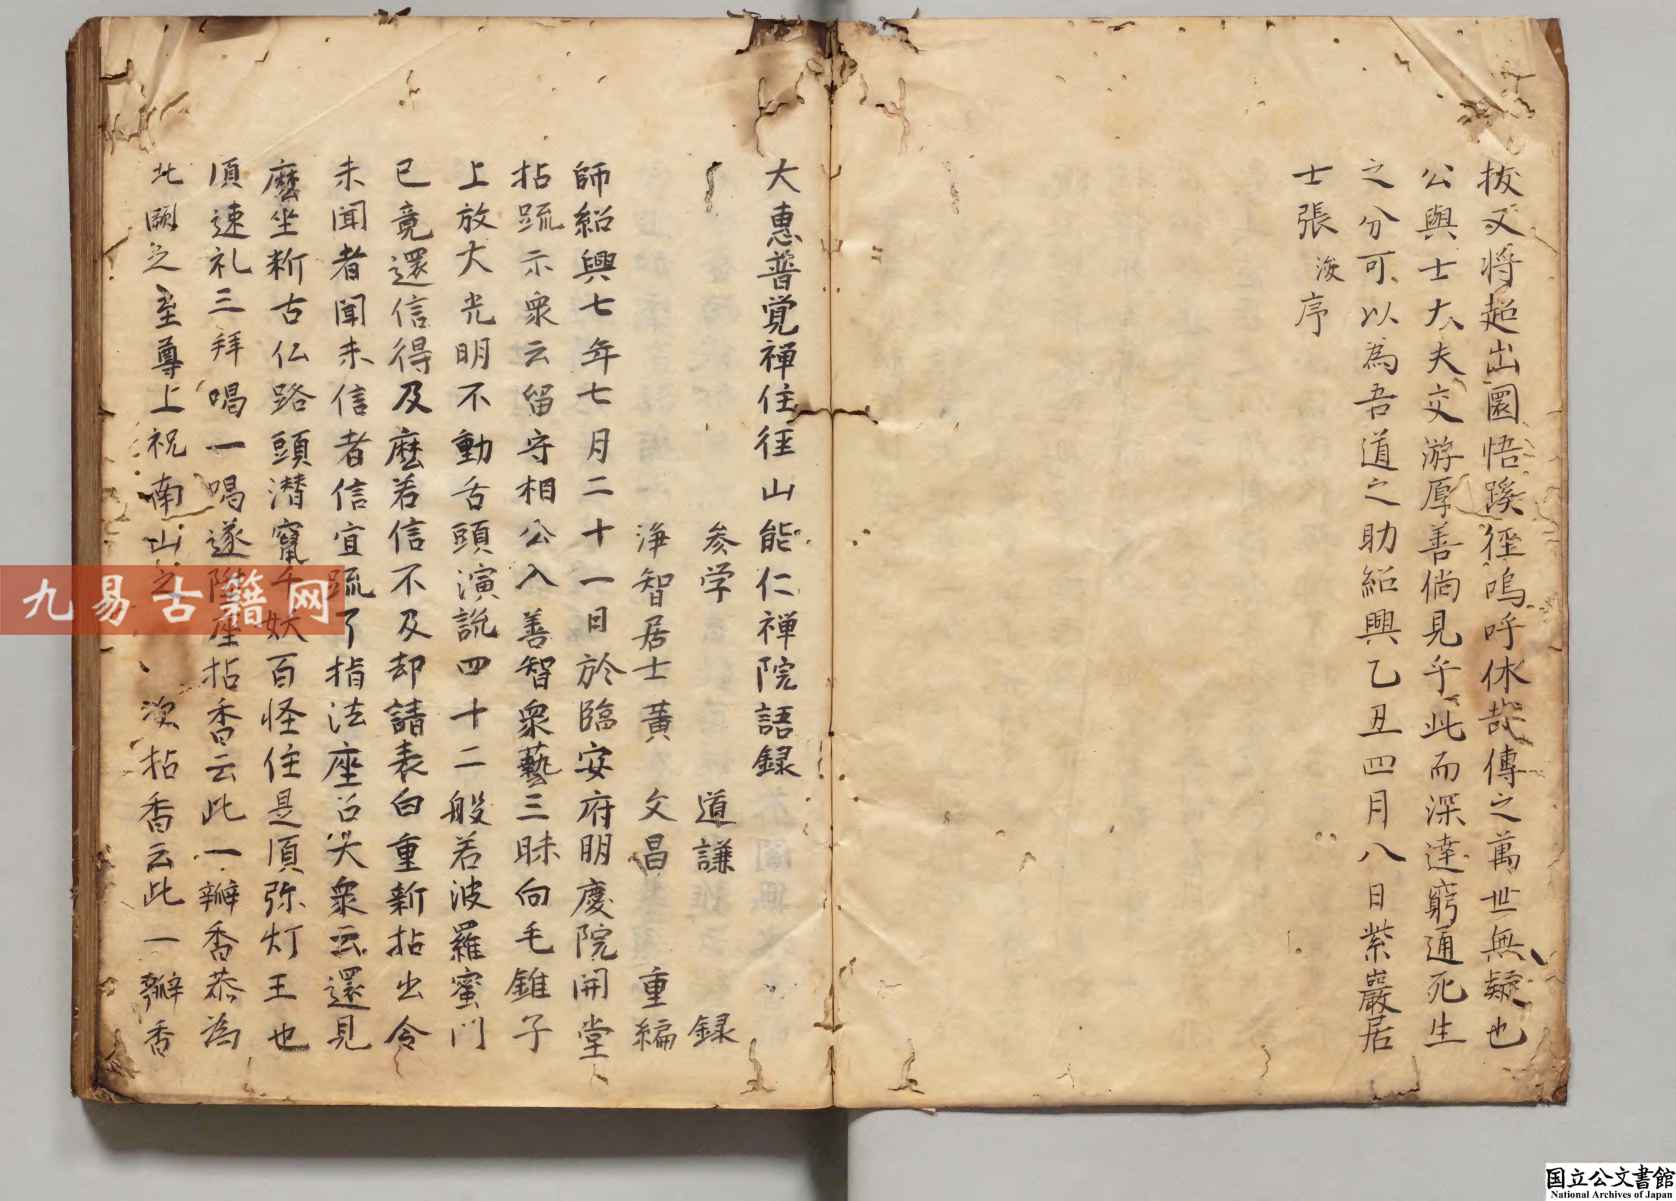 拔又将超出圜悟蹊径嗚呼休哉傳之萬世無疑也
公與士大夫交游厚善倘見乎此而深達窮通死生
之分可以為吾道之助紹興乙丑四月八日紫巖居
士張浚序
大惠普覚禅住径山能仁禅院語録
参学 道謙 録
浄智居士黄 文昌 重編
師紹興七年七月二十一日於臨安府明慶院開堂
拈䟽示衆云留守相公入善智衆藝三昧向毛錐子
上放大光明不動舌頭演説四十二般若波羅蜜門
已竟還信得及麽若信不及却請表白重新拈出令
未聞者聞未信者信宜䟽了指法座召大衆云還見
麽坐断古仏路頭潜竄千妖百怪住是湏弥灯王也
湏速礼三拜喝一喝遂陞座拈香云此一瓣香恭為
北闕之至尊上祝南山之 次拈香云此一瓣香
九易古籍网
国立公文書館
National Archives of Japan